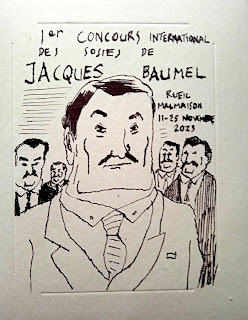 1er CONCOURS INTERNATIONAL
DES SOSIES DE
JACQUES BAUMEL
RUEIL
MALMAISON
11-25 NOVEMBRE
2023